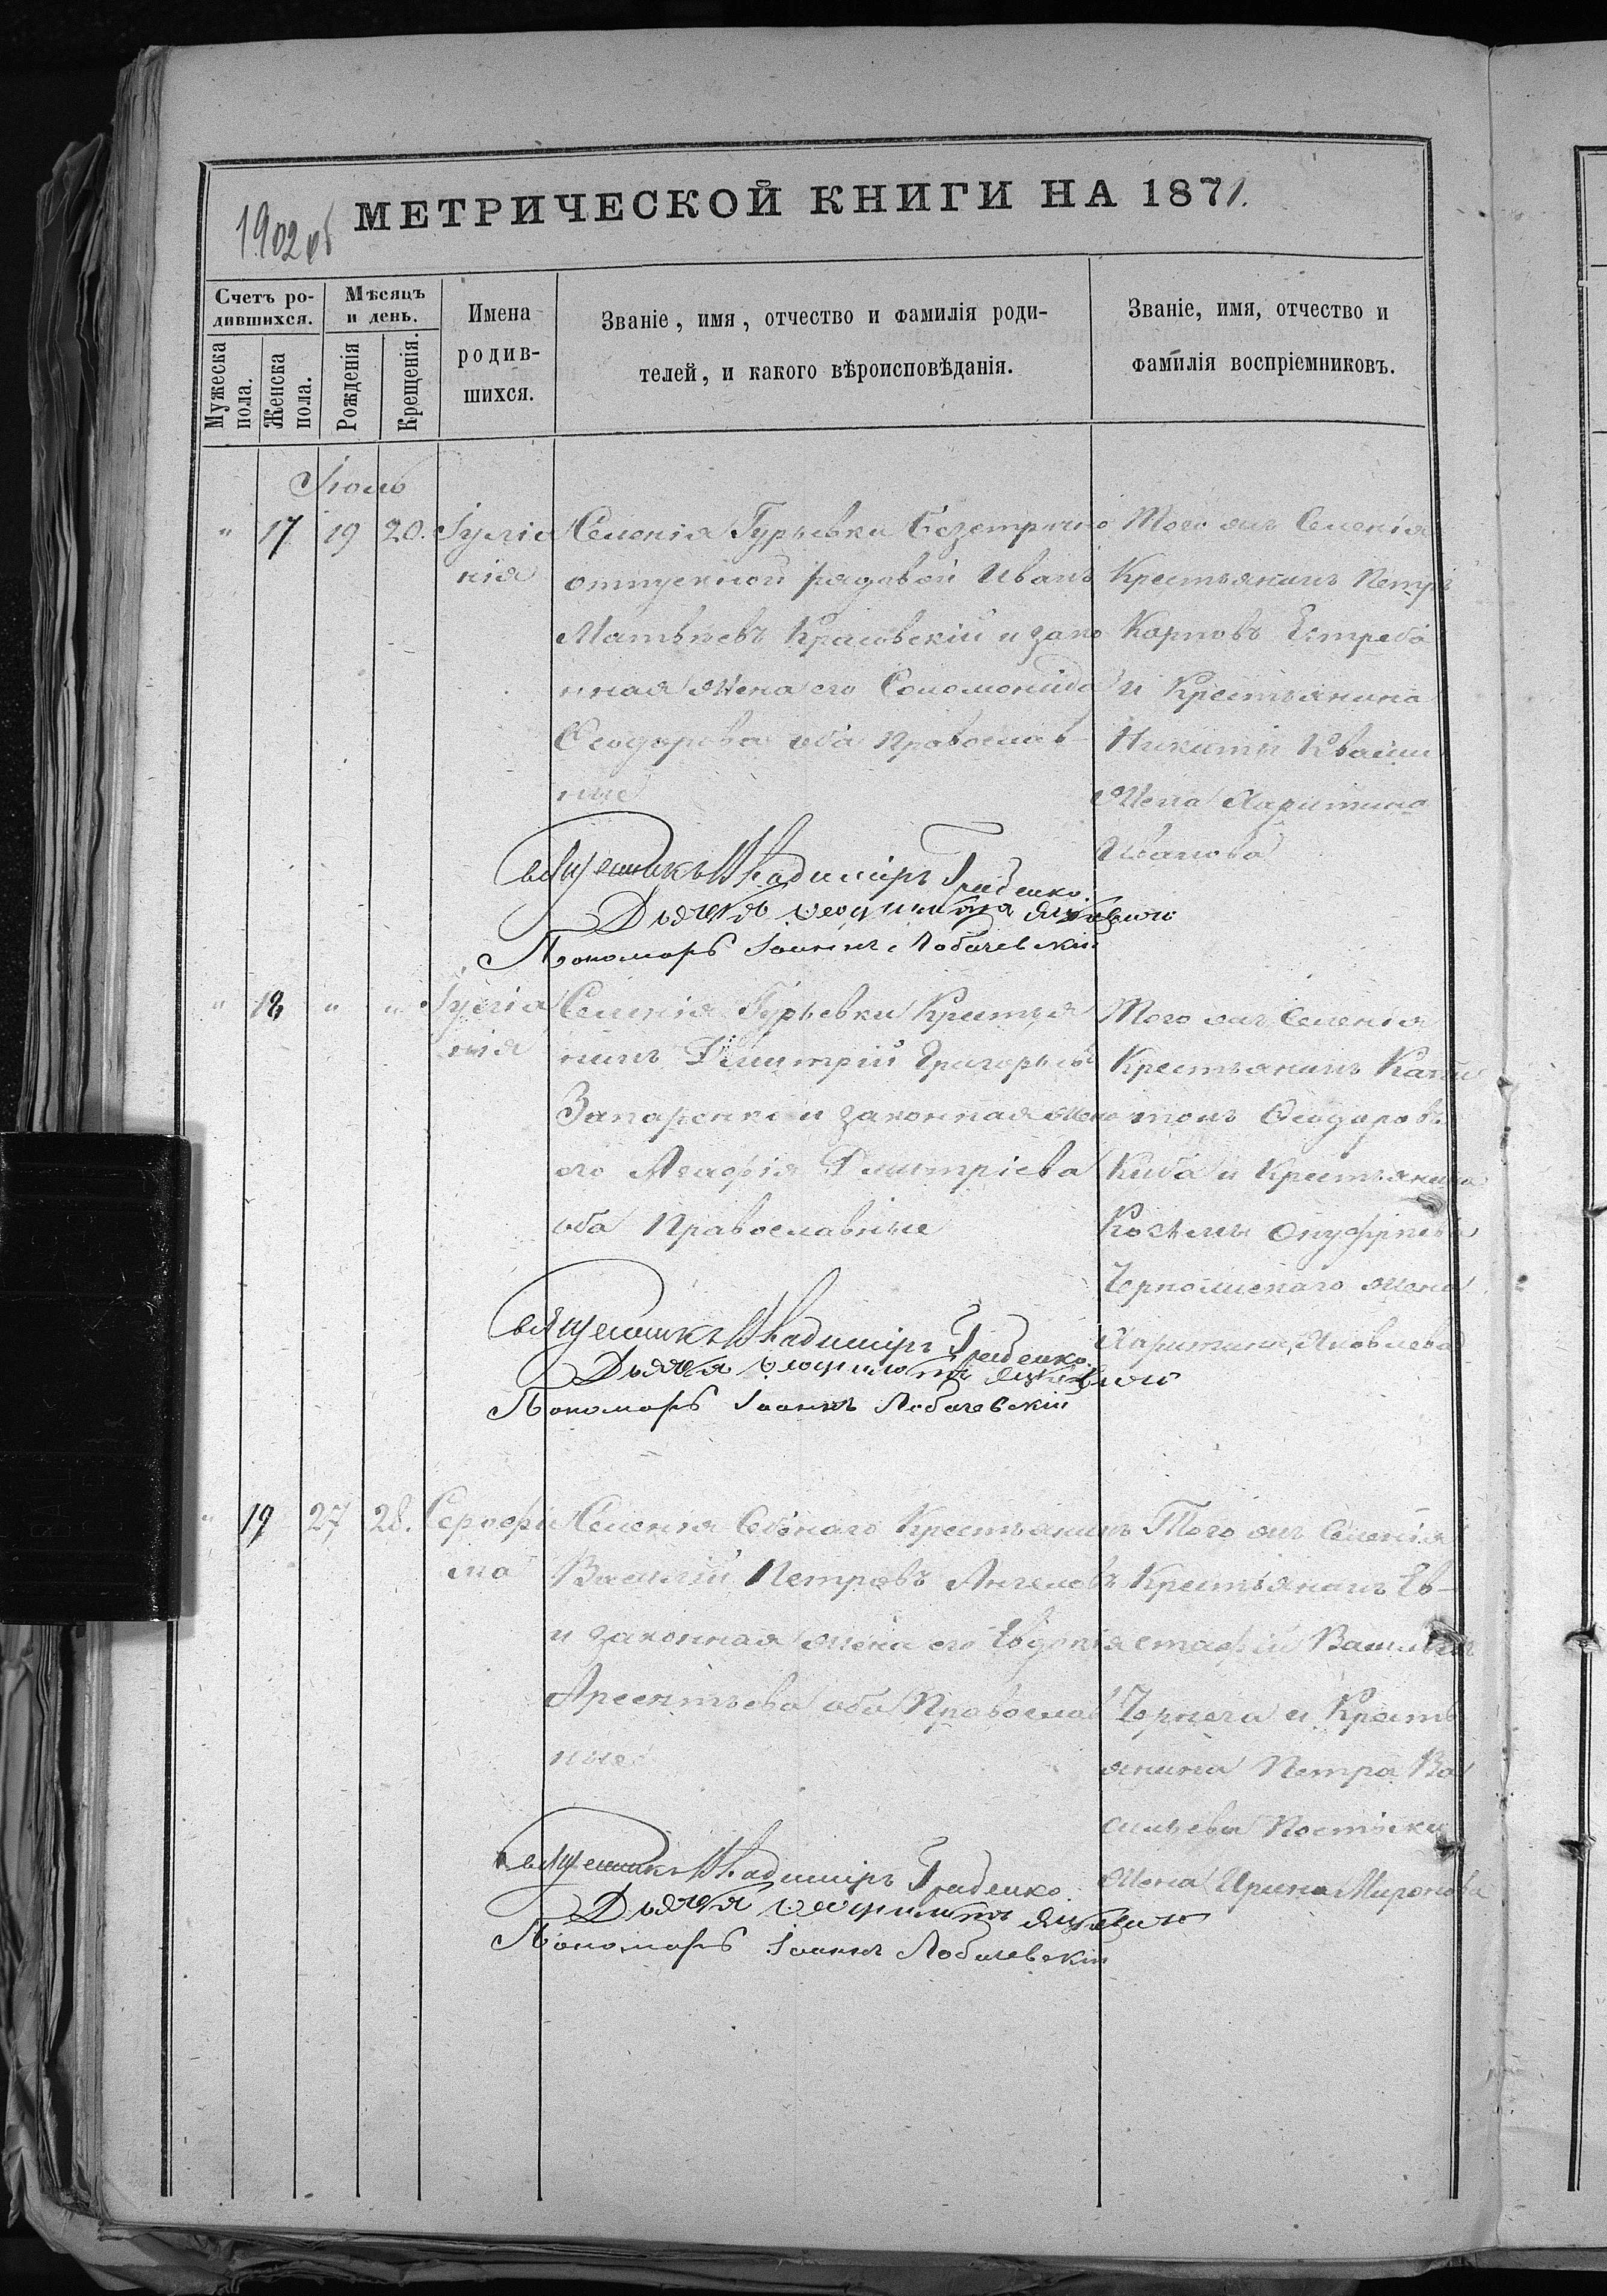 1902 об
МЕТРИЧЕСКОЙ КНИГИ НА 1871.
Счетъ родившихся.
Мѣсяцъ и день.
Имена родившихся.
Званіе, имя, отчество и фамилія родителей, и какого вѣроисповѣданія.
Званіе, имя, отчество и фамилія воспріемниковъ.
Мужеска пола.
Женска пола.
Рожденія
Крещенія.
Іюль
" 17 19 20. Іуліанія
Селенія Гурьевки безсрочно
отпускной рядовой Иванъ
Матвѣевъ Красовскій и зако
нная жена его Соломонида
Ѳеодорова оба Православ
ные
Того же Селенія
Крестьянинъ Петръ
Карповъ Ястреба
и Крестьянина
Никиты Кваши
жена Харитина
Иванова
Священникъ Владиміръ Граденко.
Дьячекъ
Пономарь Іоаннъ Лобачевскій
" 18 " " Іуліанія
Селенія Гурьевки Крестья
нинъ Димитрій Григорьевъ
Запаренко и законная жена
его Агафія Димитріева
оба Православные
Того же Селенія
Крестьянинъ Капи
тонъ Ѳеодоровъ
Киба и Крестьянина
Козьмы Онуфріева
жена
Харитина Яковлева
Священникъ Владиміръ Граденко.
Дьячекъ
Пономарь Іоаннъ Лобачевскій
" 19 27 28. Серафима
Селенія Крестьянинъ
Василій Петровъ Ангеловъ
и законная жена его Евдокія
Арсентьева оба Православ
ные
Того же Селенія
Крестьянинъ Ев-
стафій Васильевъ
Чернега и Кресть
янина Петра Ва
сильева
жена Ирина Миронова
Священникъ Владиміръ Граденко.
Дьячекъ
Пономарь Іоаннъ Лобачевскій